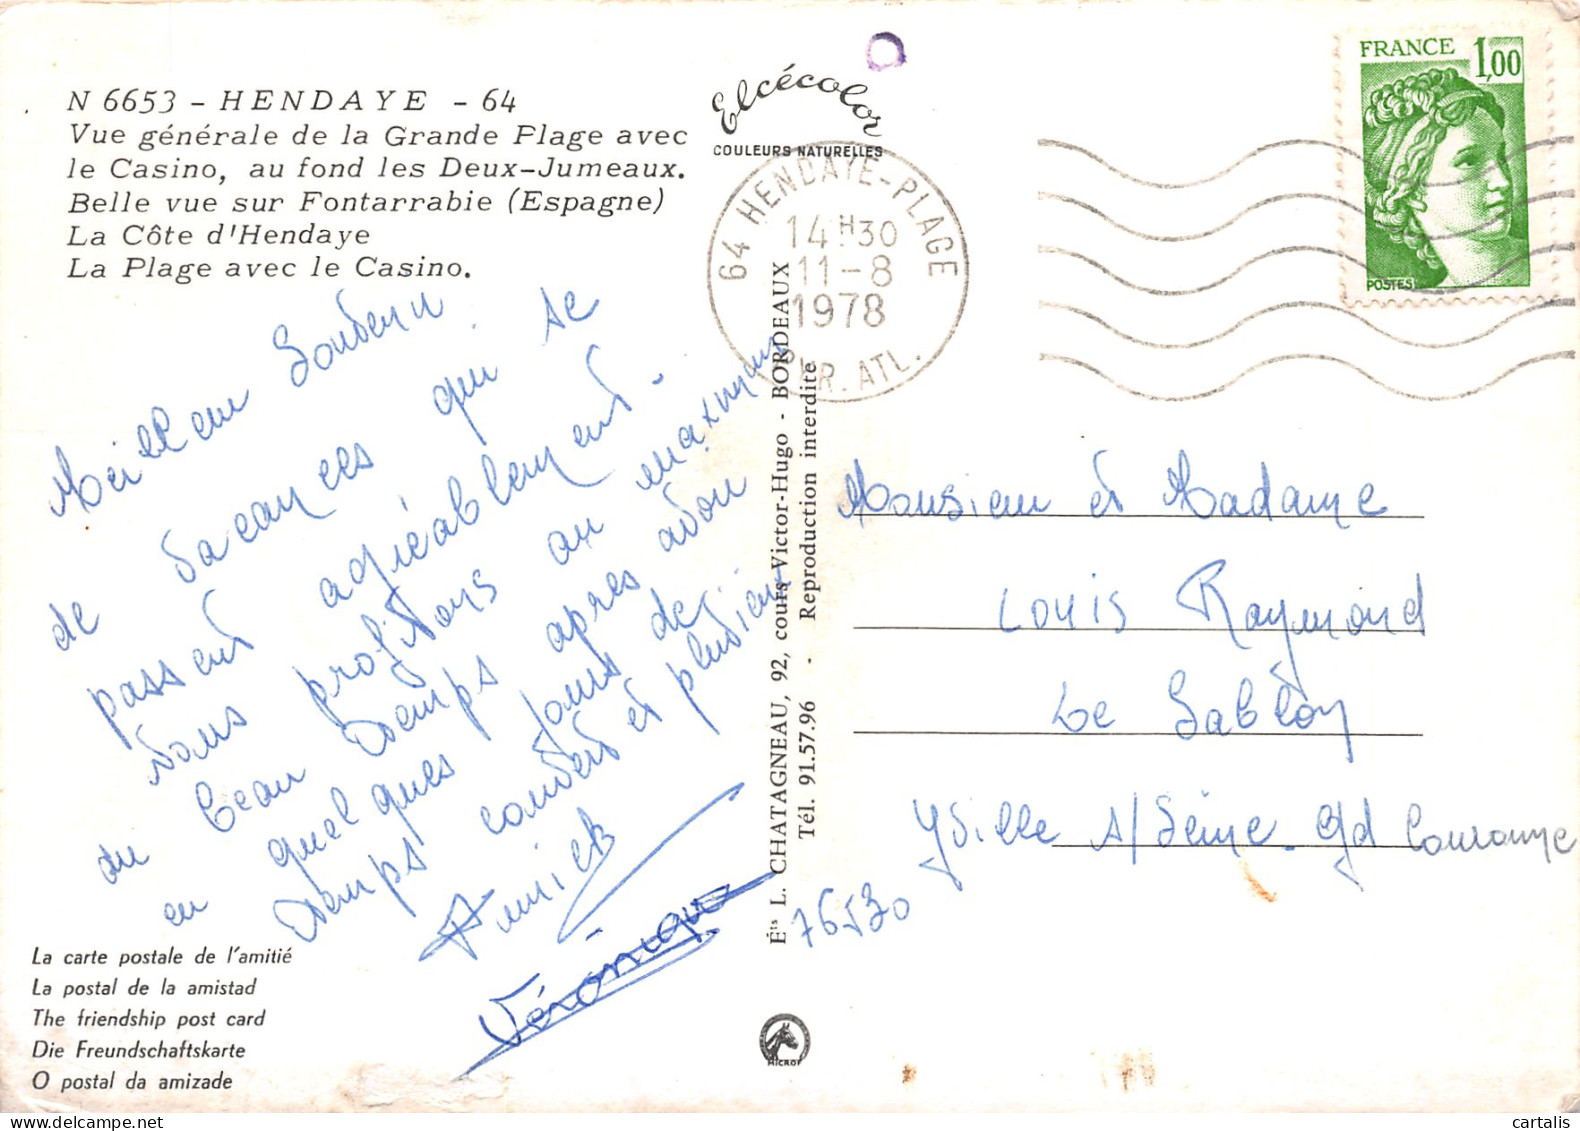 N 6653 - HENDAYE - 64
Vue générale de la Grande Plage avec
le Casino, au fond les Deux-Jumeaux.
Belle vue sur Fontarrabie (Espagne)
La Côte d'Hendaye
La Plage avec le Casino.
Meilleur Souvenir
de vacances qui se
passent agréablement.
Nous profitons au maximum
du beau temps après avoir
eu quelques jours de
temps couvert et pluvieux
Annick
Véronique
La carte postale de l'amitié
La postal de la amistad
The friendship post card
Die Freundschaftskarte
O postal da amizade
Elcécolor
COULEURS NATURELLES
64 HENDAYE-PLAGE
14H30
11-8
1978
PYR. ATL.
Éts L. CHATAGNEAU, 92, cours Victor-Hugo - BORDEAUX
Tél. 91.57.96 - Reproduction interdite
MICRO
FRANCE 1,00
POSTES
Monsieur et Madame
Louis Raymond
Le Sablon
Yville s/Seine - Gd Couronne
76530
cartalis